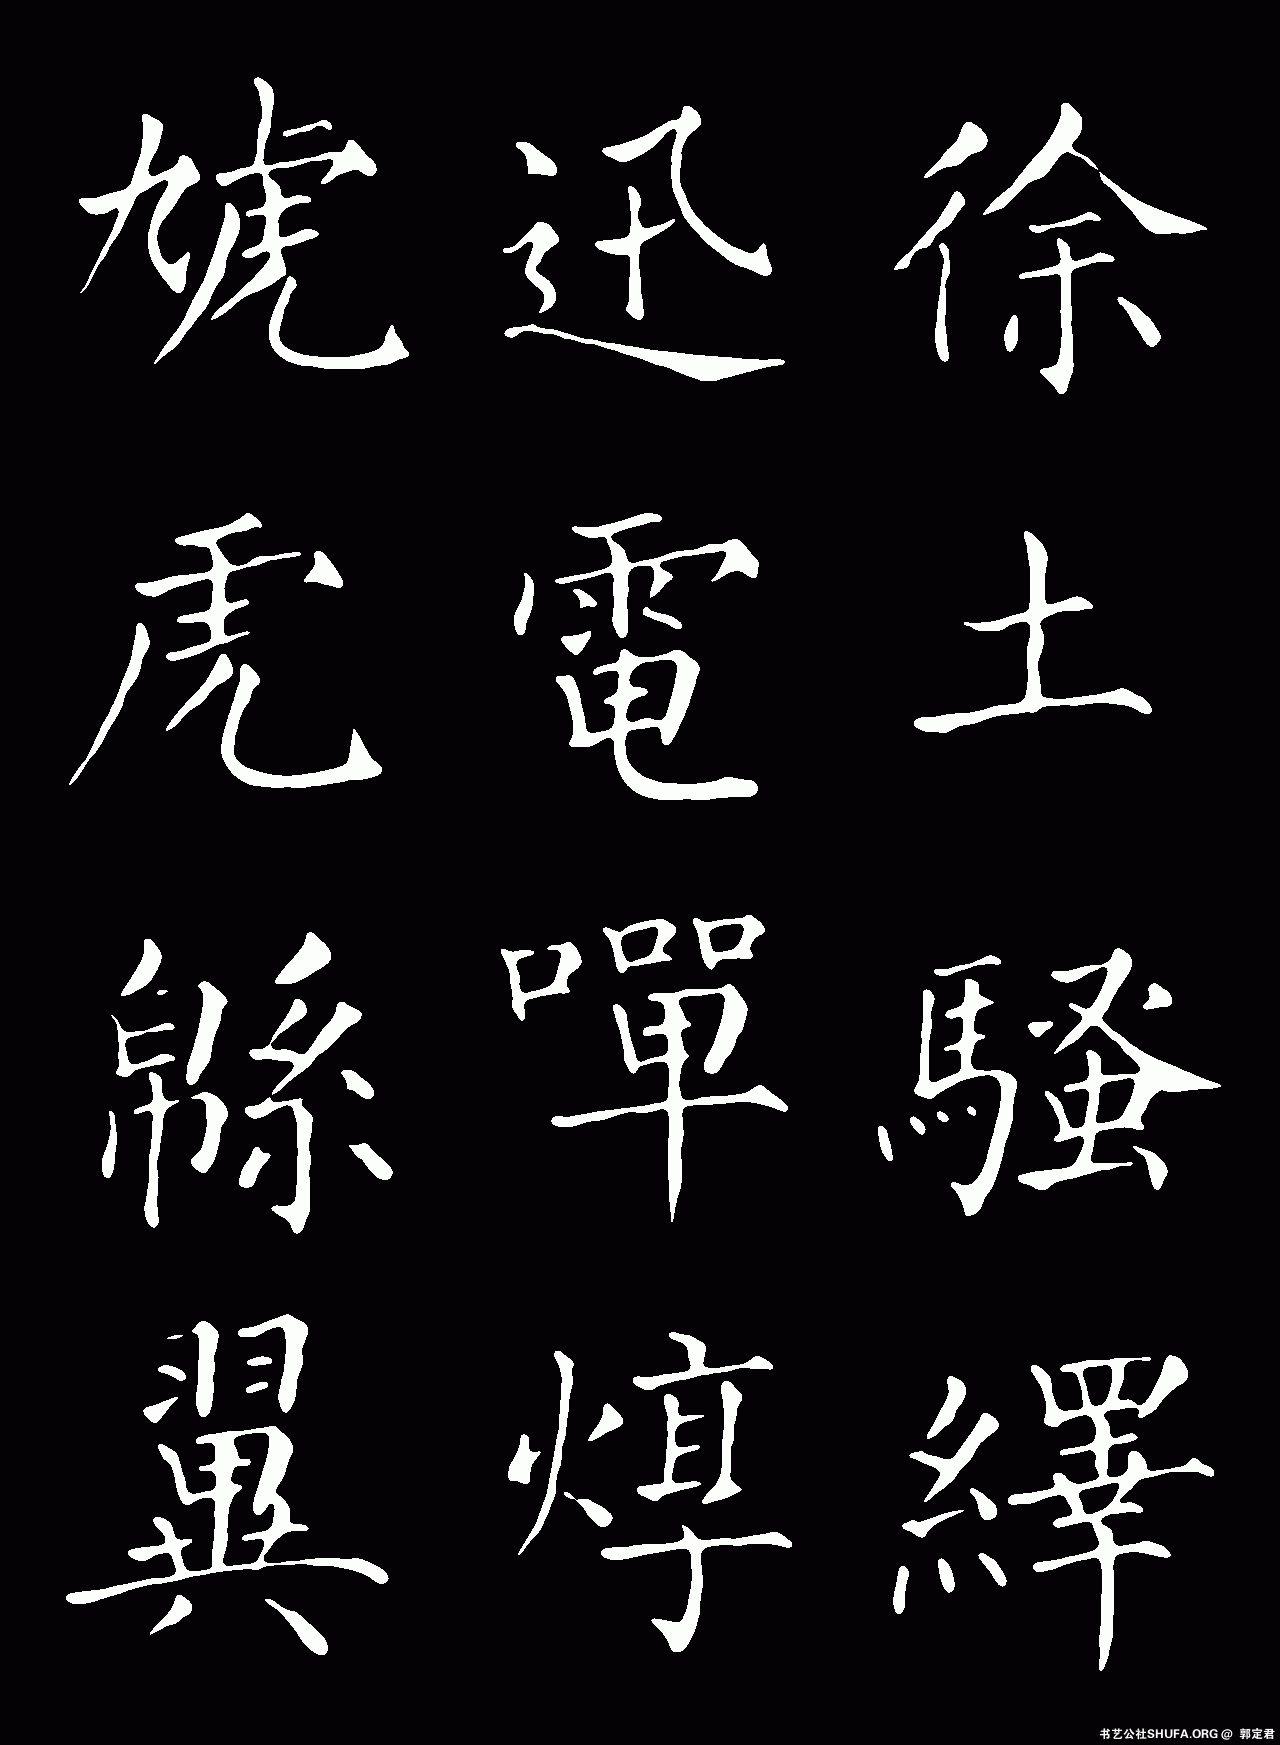 徐土騷繹
迅電嘽焞
虓虎緜翼
书艺公社SHUFA.ORG @ 郭定君